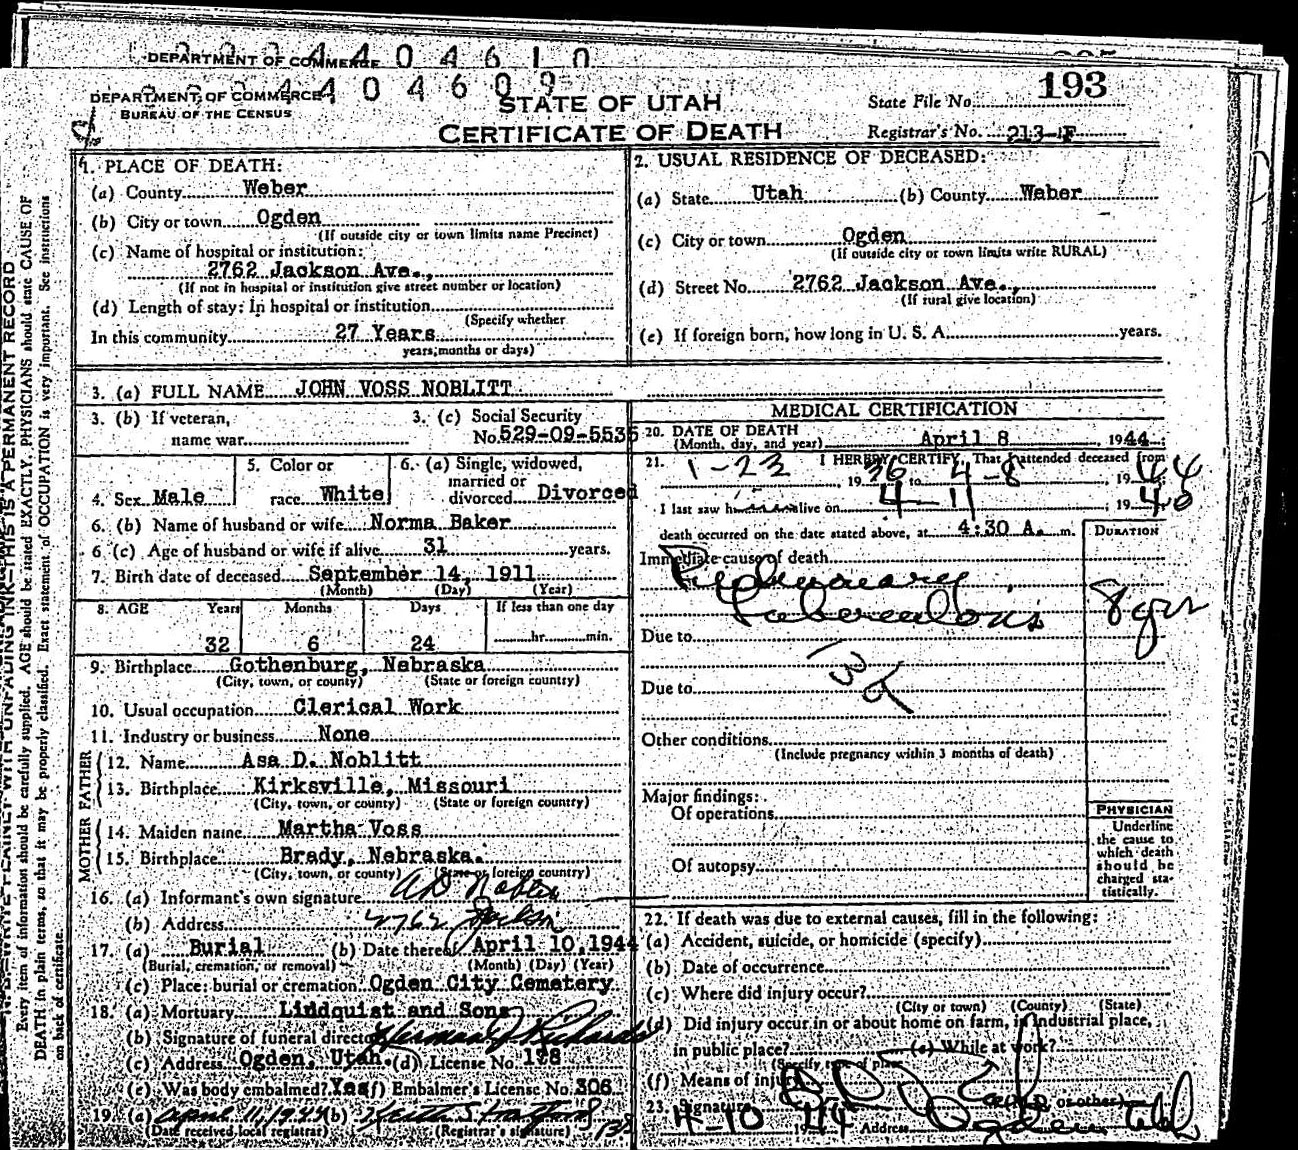 DEPARTMENT OF COMMERCE
404610
DEPARTMENT OF COMMERCE
404609
BUREAU OF THE CENSUS
STATE OF UTAH
CERTIFICATE OF DEATH
State File No. 193
Registrar's No. 213-F
1. PLACE OF DEATH:
(a) County Weber
(b) City or town Ogden
(If outside city or town limits name Precinct)
(c) Name of hospital or institution:
2762 Jackson Ave.,
(If not in hospital or institution give street number or location)
(d) Length of stay: In hospital or institution
(Specify whether
In this community 27 Years
years, months or days)
2. USUAL RESIDENCE OF DECEASED:
(a) State Utah (b) County Weber
(c) City or town Ogden
(If outside city or town limits write RURAL)
(d) Street No. 2762 Jackson Ave.,
(If rural give location)
(e) If foreign born, how long in U. S. A. years.
3. (a) FULL NAME JOHN VOSS NOBLITT
3. (b) If veteran, 3. (c) Social Security
name war No. 529-09-5535
4. Sex Male
5. Color or
race White
6. (a) Single, widowed,
married or
divorced Divorced
6. (b) Name of husband or wife Norma Baker
6 (c) Age of husband or wife if alive 31 years.
7. Birth date of deceased September 14, 1911
(Month) (Day) (Year)
8. AGE Years Months Days If less than one day
32 6 24 hr. min.
9. Birthplace Gothenburg, Nebraska
(City, town, or county) (State or foreign country)
10. Usual occupation Clerical Work
11. Industry or business None
FATHER
12. Name Asa D. Noblitt
13. Birthplace Kirksville, Missouri
(City, town, or county) (State or foreign country)
MOTHER
14. Maiden name Martha Voss
15. Birthplace Brady, Nebraska.
(City, town, or county) (State or foreign country)
16. (a) Informant's own signature
(b) Address 2762 Jackson
17. (a) Burial (b) Date thereof April 10, 1944
(Burial, cremation, or removal) (Month) (Day) (Year)
(c) Place: burial or cremation Ogden City Cemetery
18. (a) Mortuary Lindquist and Sons
(b) Signature of funeral director
(c) Address Ogden, Utah. (d) License No. 178
(e) Was body embalmed? Yes (f) Embalmer's License No. 306
19. (a) April 11, 1944 (b)
(Date received local registrar) (Registrar's signature)
MEDICAL CERTIFICATION
20. DATE OF DEATH
(Month, day, and year) April 8 1944
21. I HEREBY CERTIFY, That I attended deceased from
1-23 1936 to 4-8 1944
I last saw h alive on 4-11 19
death occurred on the date stated above, at 4:30 A. m.
DURATION
Immediate cause of death
Pulmonary
Tuberculosis 8 yrs
Due to
Due to
Other conditions
(Include pregnancy within 3 months of death)
Major findings:
Of operations
Of autopsy
PHYSICIAN
Underline
the cause to
which death
should be
charged sta-
tistically.
22. If death was due to external causes, fill in the following:
(a) Accident, suicide, or homicide (specify)
(b) Date of occurrence
(c) Where did injury occur?
(City or town) (County) (State)
(d) Did injury occur in or about home on farm, in industrial place,
in public place? (e) While at work?
(Specify type of place)
(f) Means of injury
23. Signature
4-10 1944 Address Ogden Utah
Every item of information should be carefully supplied. AGE should be stated EXACTLY. PHYSICIANS should state CAUSE OF
DEATH in plain terms, so that it may be properly classified. Exact statement of OCCUPATION is very important. See instructions
on back of certificate.